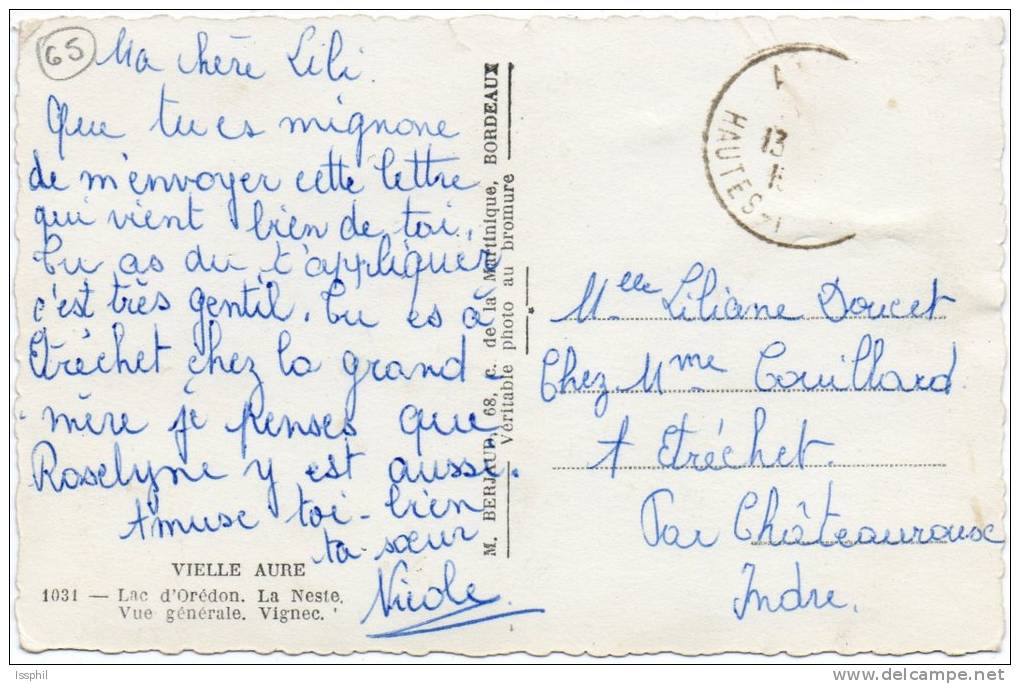 65
Ma chère Lili.
Que tu es mignone
de m'envoyer cette lettre
qui vient bien de toi.
Tu as du t'appliquer
c'est très gentil. Tu es à
Etréchet chez la grand-
mère je penses que
Roselyne y est aussi.
Amuse toi-bien
ta sœur
Nicole.
VIELLE AURE
1031 — Lac d'Orédon. La Neste,
Vue générale. Vignec.
M. BERJAUD, 68, c. de la Martinique, BORDEAUX
Véritable photo au bromure
13
HAUTES-
Mlle Liliane Doucet
Chez Mme Couillard
A Etréchet.
Par Châteauroux
Indre.
Issphil
delcampe.net